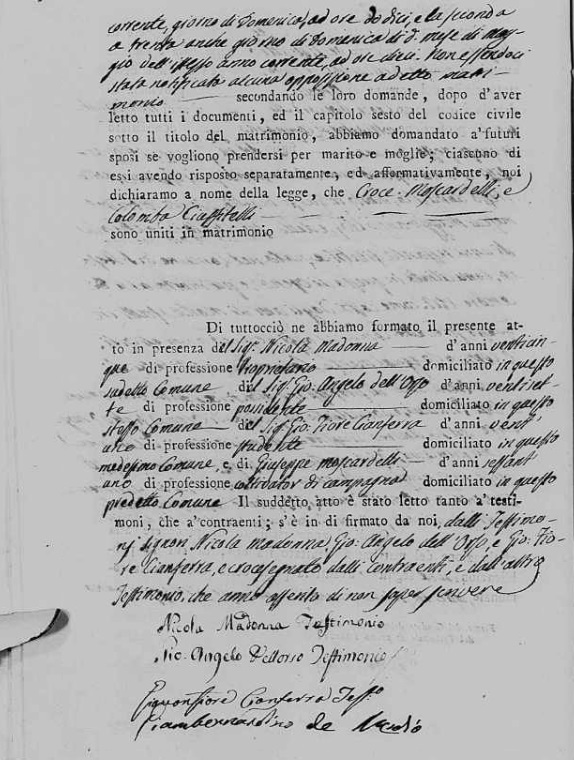 corrente, giorno di Domenica, ad ore dodici, e la seconda
a trenta anche giorno di Domenica di d. mese di Mag-
gio dell'istesso anno corrente, ad ore dieci. Non essendoci
stata notificata alcuna opposizione a detto matri-
monio — secondando le loro domande, dopo d'aver
letto tutti i documenti, ed il capitolo sesto del codice civile
sotto il titolo del matrimonio, abbiamo domandato a' futuri
sposi se vogliono prendersi per marito e moglie; ciascuno di
essi avendo risposto separatamente, ed affermativamente, noi
dichiaramo a nome della legge, che Croce Moscardelli, e
Colomba
sono uniti in matrimonio
Di tuttocciò ne abbiamo formato il presente at-
to in presenza del Sig. Nicola Madonna — d'anni venticin-
que di professione proprietario — domiciliato in questo
sudetto Comune del Sig. Gio. Angelo dell'Orso d'anni ventiset-
te di professione possidente — domiciliato in questo
stesso Comune — del Sig. Gio. Fiore Cianferra d'anni vent'
uno di professione studente — domiciliato in questo
medesimo Comune, e di Giuseppe Moscardelli — d'anni sessant'
uno di professione coltivator di campagna domiciliato in questo
predetto Comune Il suddetto atto è stato letto tanto a' testi-
moni, che a' contraenti; s'è in di firmato da noi, dalli Testimo-
nj Signori Nicola Madonna, Gio. Angelo dell'Orso, e Gio. Fio-
re Cianferra, e crocesegnato dalli contraenti, e dall'altro
Testimonio, che anno assento di non saper scrivere
Nicola Madonna Testimonio
Gio. Angelo Dellorso Testimonio
Cianferra Tes.o
Giambernardino de